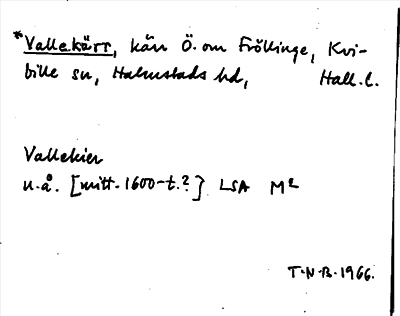 *Vallekärr, kärr Ö. om Fröllinge, Kvi-
bille sn, Halmstads hd, Hall. l.
Vallekier
u.å. [mitt. 1600-t.?] LSA M²
T.N.B. 1966.